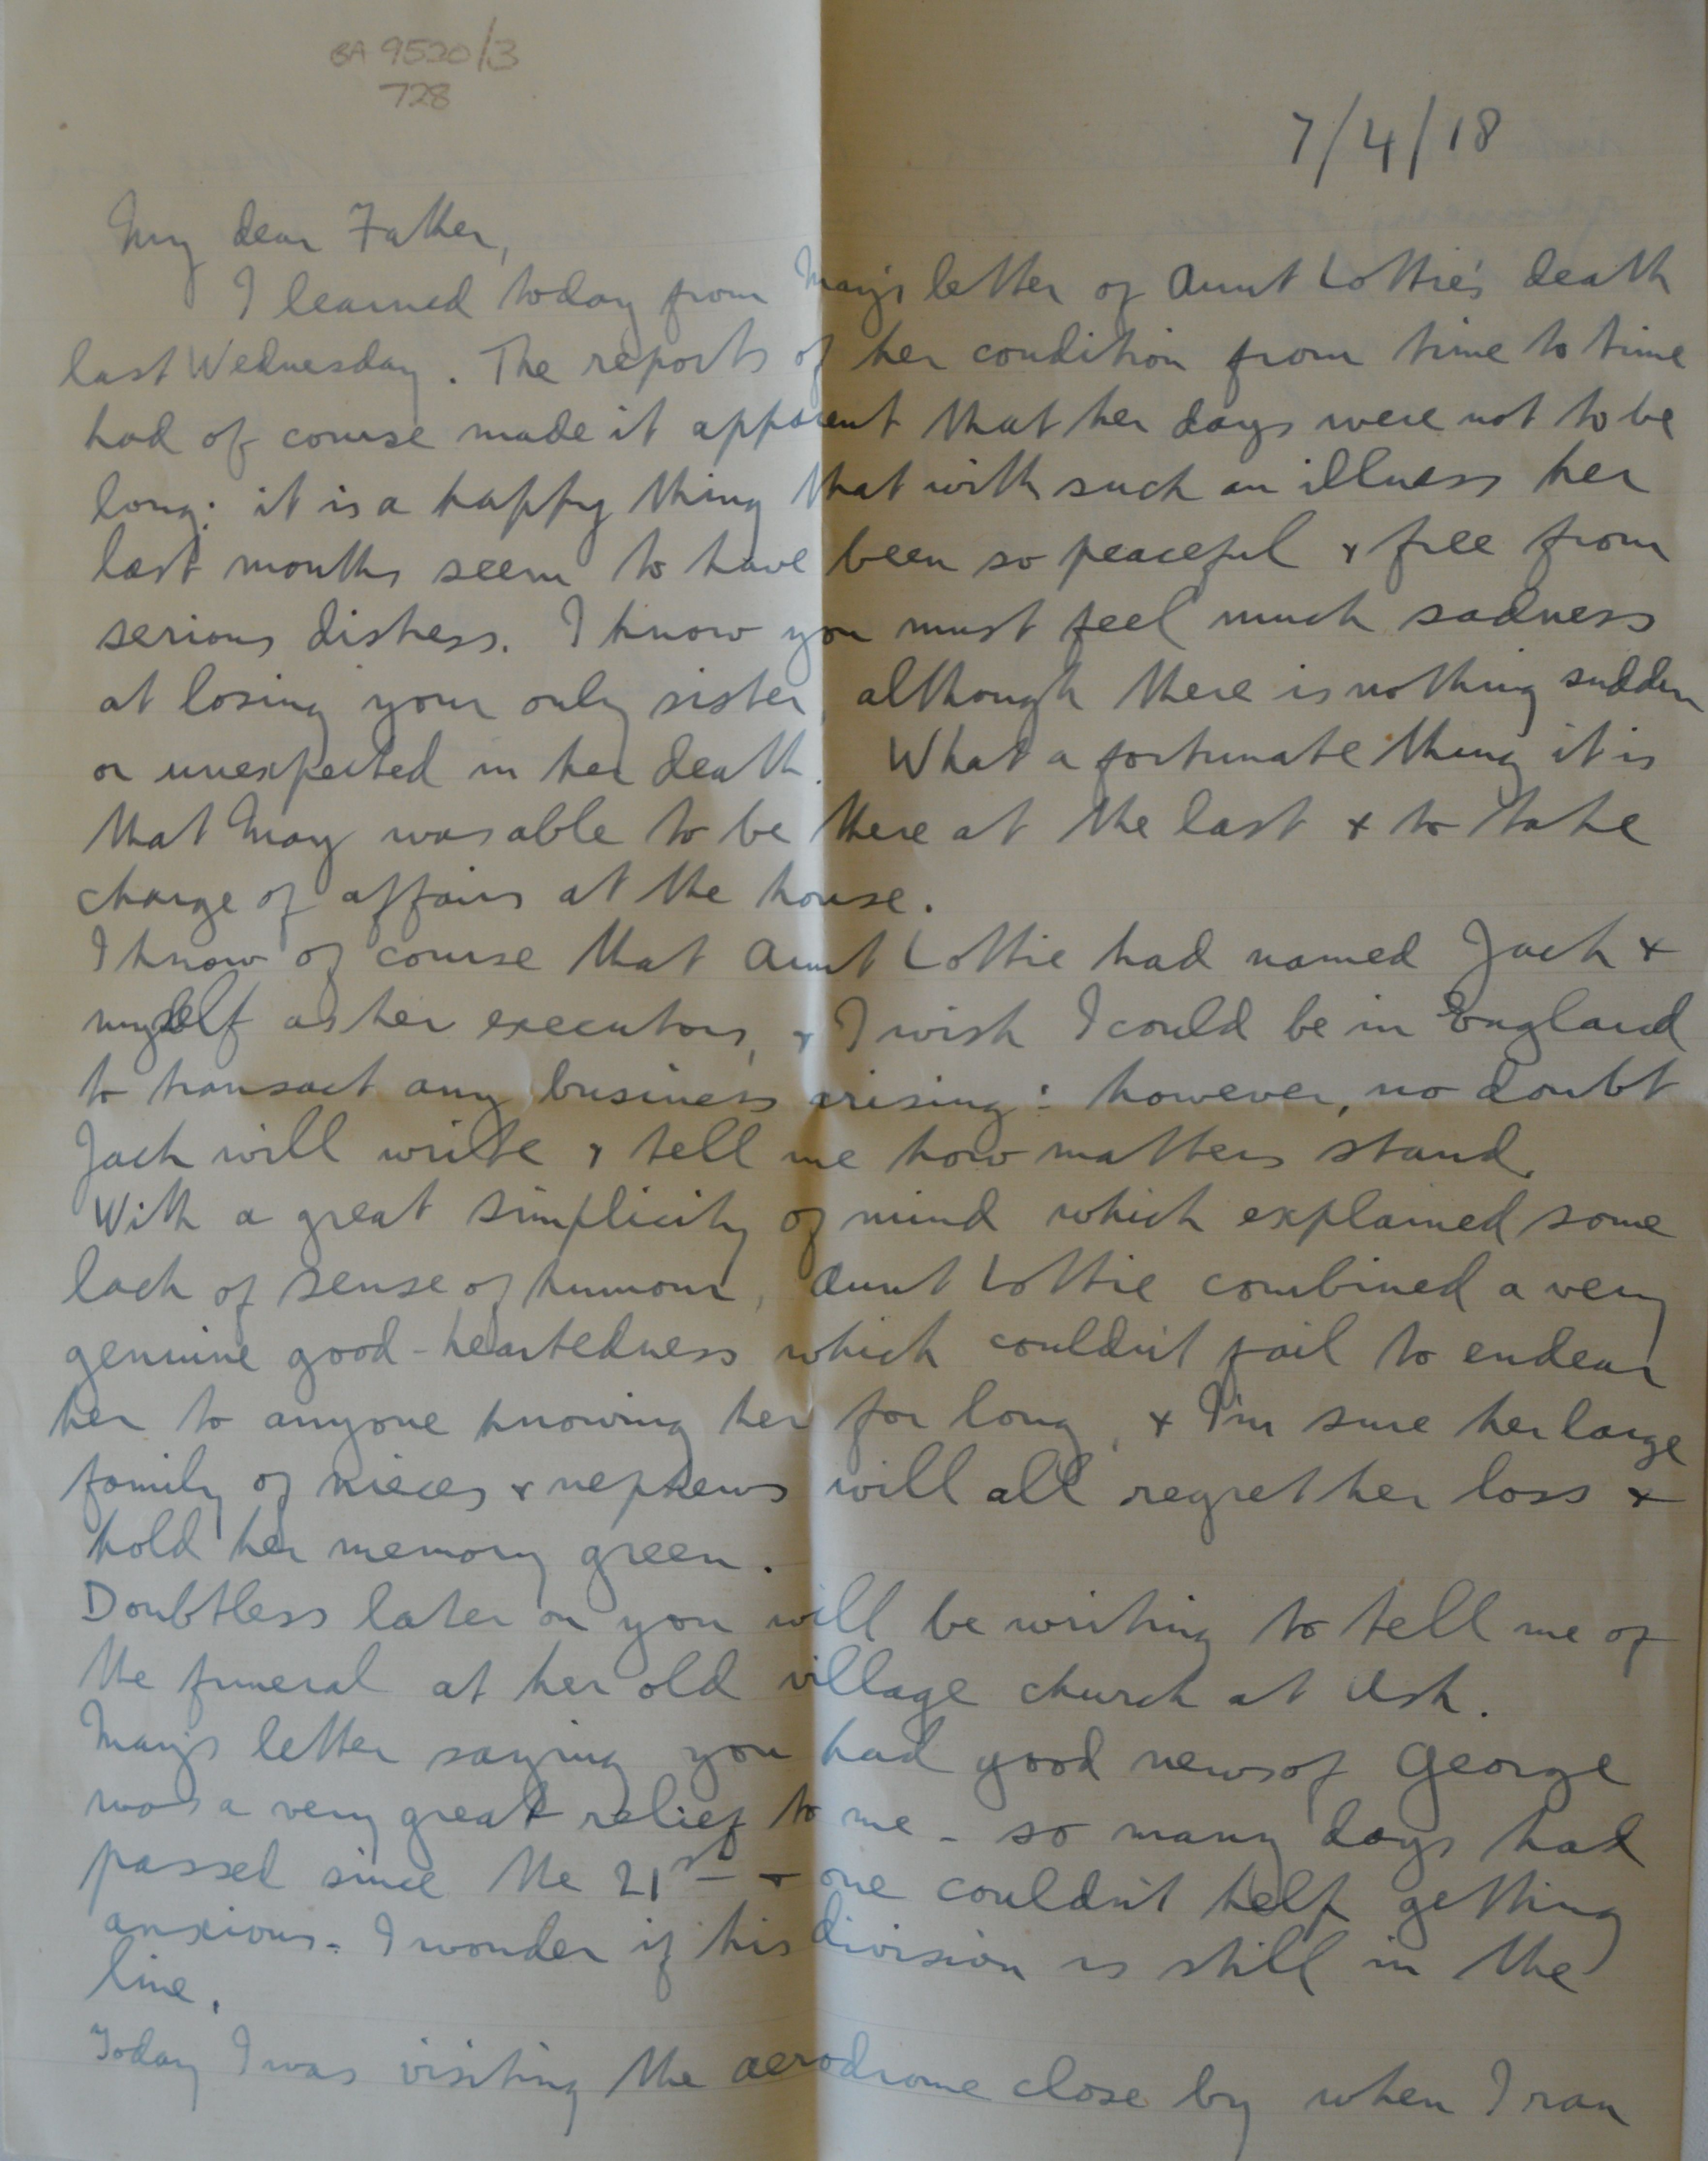 BA 9520/3
728
7/4/18
My dear Father,
I learned today from May's letter of Aunt Lottie's death
last Wednesday. The reports of her condition from time to time
had of course made it apparent that her days were not to be
long: it is a happy thing that with such an illness her
last months seem to have been so peaceful & free from
serious distress. I know you must feel much sadness
at losing your only sister, although there is nothing sudden
or unexpected in her death. What a fortunate thing it is
that May was able to be there at the last & to take
charge of affairs at the house.
I know of course that Aunt Lottie had named Jack &
myself as her executors, & I wish I could be in England
to transact any business arising: however, no doubt
Jack will write & tell me how matters stand.
With a great simplicity of mind which explained some
lack of sense of humour, Aunt Lottie combined a very
genuine good-heartedness which couldn't fail to endear
her to anyone knowing her for long, & I'm sure her large
family of nieces & nephews will all regret her loss &
hold her memory green.
Doubtless later on you will be writing to tell me of
the funeral at her old village church at Ash.
May's letter saying you had good news of George
was a very great relief to me - so many days had
passed since the 21st & one couldn't help getting
anxious. I wonder if his division is still in the
line.
Today I was visiting the aerodrome close by when I ran